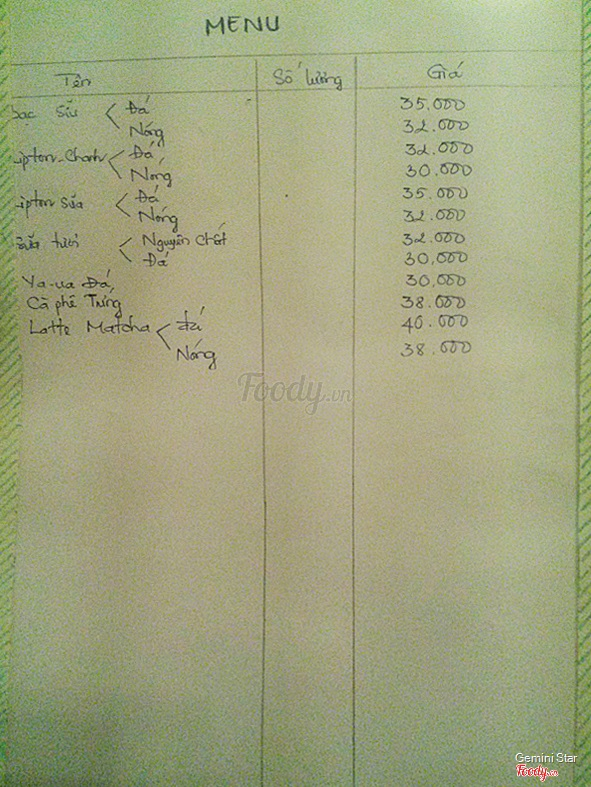 MENU
Tên Số lượng Giá
bạc sỉu < Đá 35.000
Nóng 32.000
Lipton-Chanh < Đá 32.000
Nóng 30.000
Lipton sữa < Đá 35.000
Nóng 32.000
Sữa tươi < Nguyên Chất 32.000
Đá 30,000
Ya-ua Đá, 30,000
Cà phê Trứng 38.000
Latte Matcha < đá 40.000
Nóng 38.000
Foody.vn
Gemini Star
Foody.vn